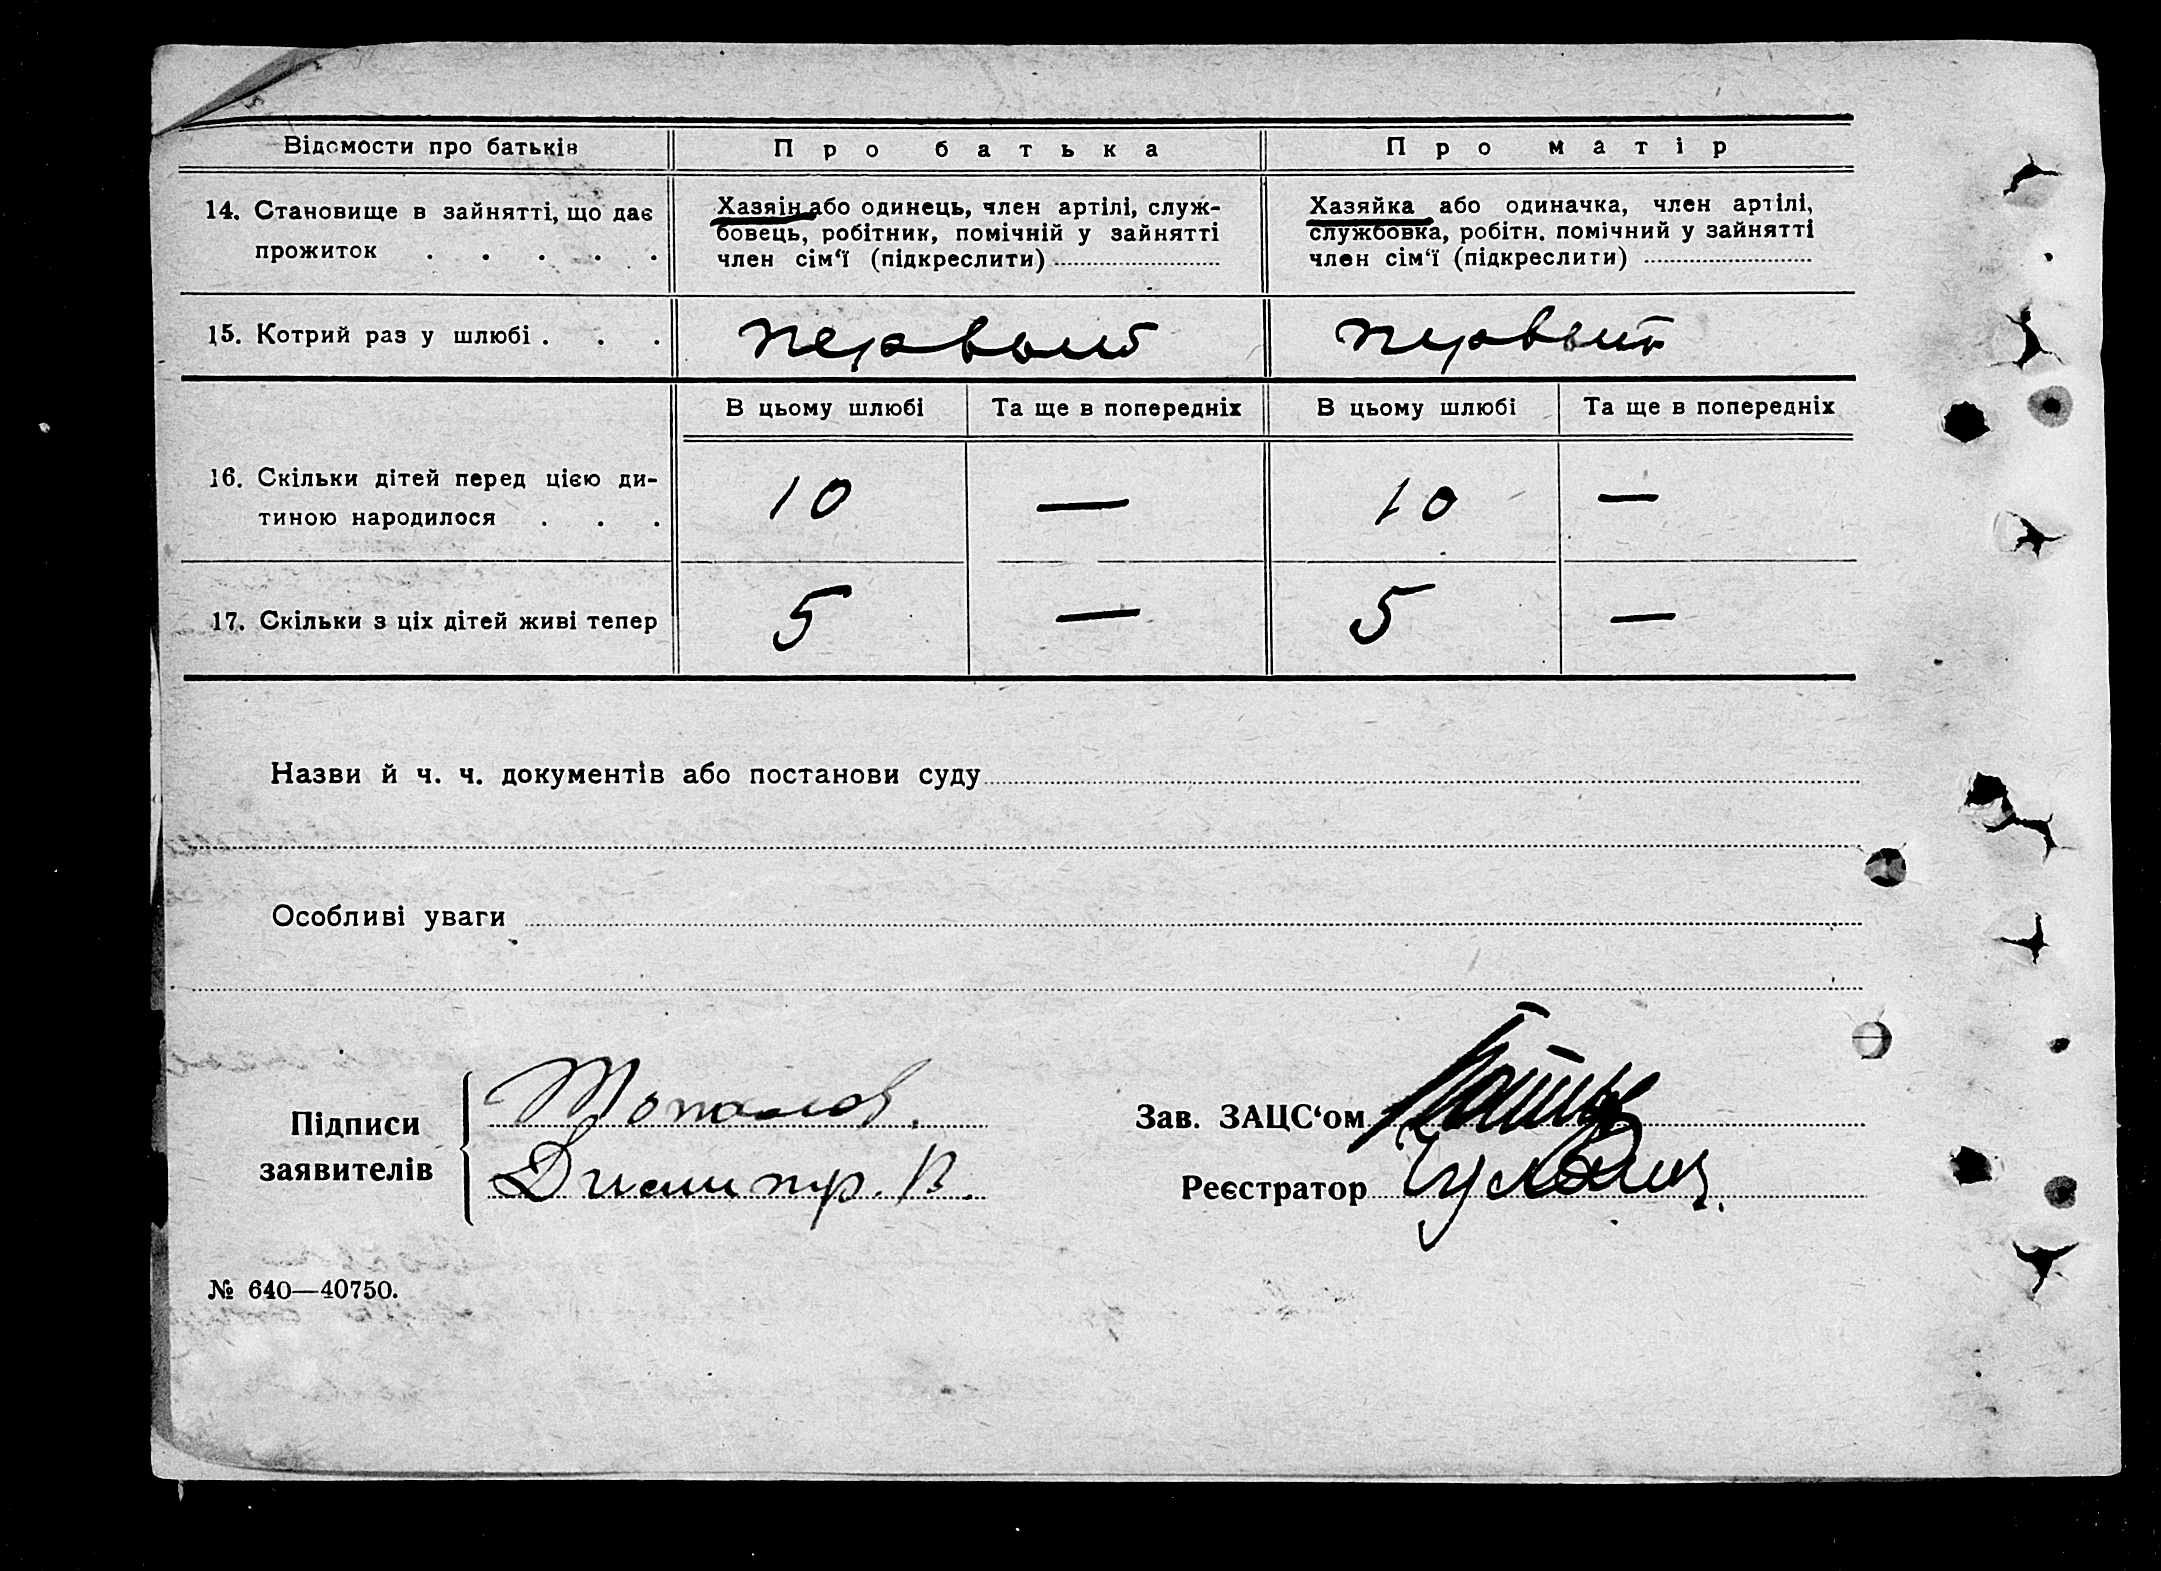 Відомости про батьків
Про батька
Про матір
14. Становище в зайнятті, що дає
прожиток . . . . .
Хазяїн або одинець, член артілі, служ-
бовець, робітник, помічній у зайнятті
член сім‘ї (підкреслити)
Хазяйка або одиначка, член артілі,
службовка, робітн. помічний у зайнятті
член сім‘ї (підкреслити)
15. Котрий раз у шлюбі . . .
первый
первый
В цьому шлюбі
Та ще в попередніх
В цьому шлюбі
Та ще в попередніх
16. Скільки дітей перед цією ди-
тиною народилося . . .
10
—
10
—
17. Скільки з ціх дітей живі тепер
5
—
5
—
Назви й ч. ч. документів або постанови суду
Особливі уваги
Підписи
заявителів
Топалов.
Димитр. В.
Зав. ЗАЦС‘ом
Реєстратор
№ 640—40750.